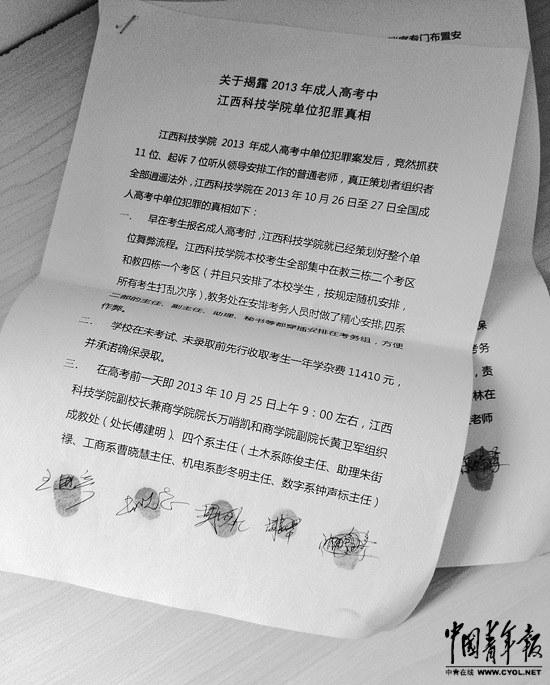 关于揭露 2013 年成人高考中
江西科技学院单位犯罪真相
江西科技学院 2013 年成人高考中单位犯罪案发后，竟然抓获
11 位、起诉 7 位听从领导安排工作的普通老师，真正策划者组织者
全部逍遥法外，江西科技学院在 2013 年 10 月 26 日至 27 日全国成
人高考中单位犯罪的真相如下：
一、 早在考生报名成人高考时，江西科技学院就已经策划好整个单
位舞弊流程。江西科技学院本校考生全部集中在教三栋二个考区
和教四栋一个考区（并且只安排了本校学生，按规定随机安排，
所有考生打乱次序），教务处在安排考务人员时做了精心安排，四系
二部的主任、副主任、助理、秘书等都穿插安排在考务组，方便
作弊。
二、 学校在未考试、未录取前先行收取考生一年学杂费 11410 元，
并承诺确保录取。
三、 在高考前一天即 2013 年 10 月 25 日上午 9：00 左右，江西
科技学院副校长兼商学院院长万哨凯和商学院副院长黄卫军组织
成教处（处长傅建明）、四个系主任（土木系陈俊主任、助理朱街
禄、工商系曹晓慧主任、机电系彭冬明主任、数字系钟声标主任）
专门布置安
保
考务
，责
林在
老师
中国青年报
中青在线 WWW.CYOL.NET